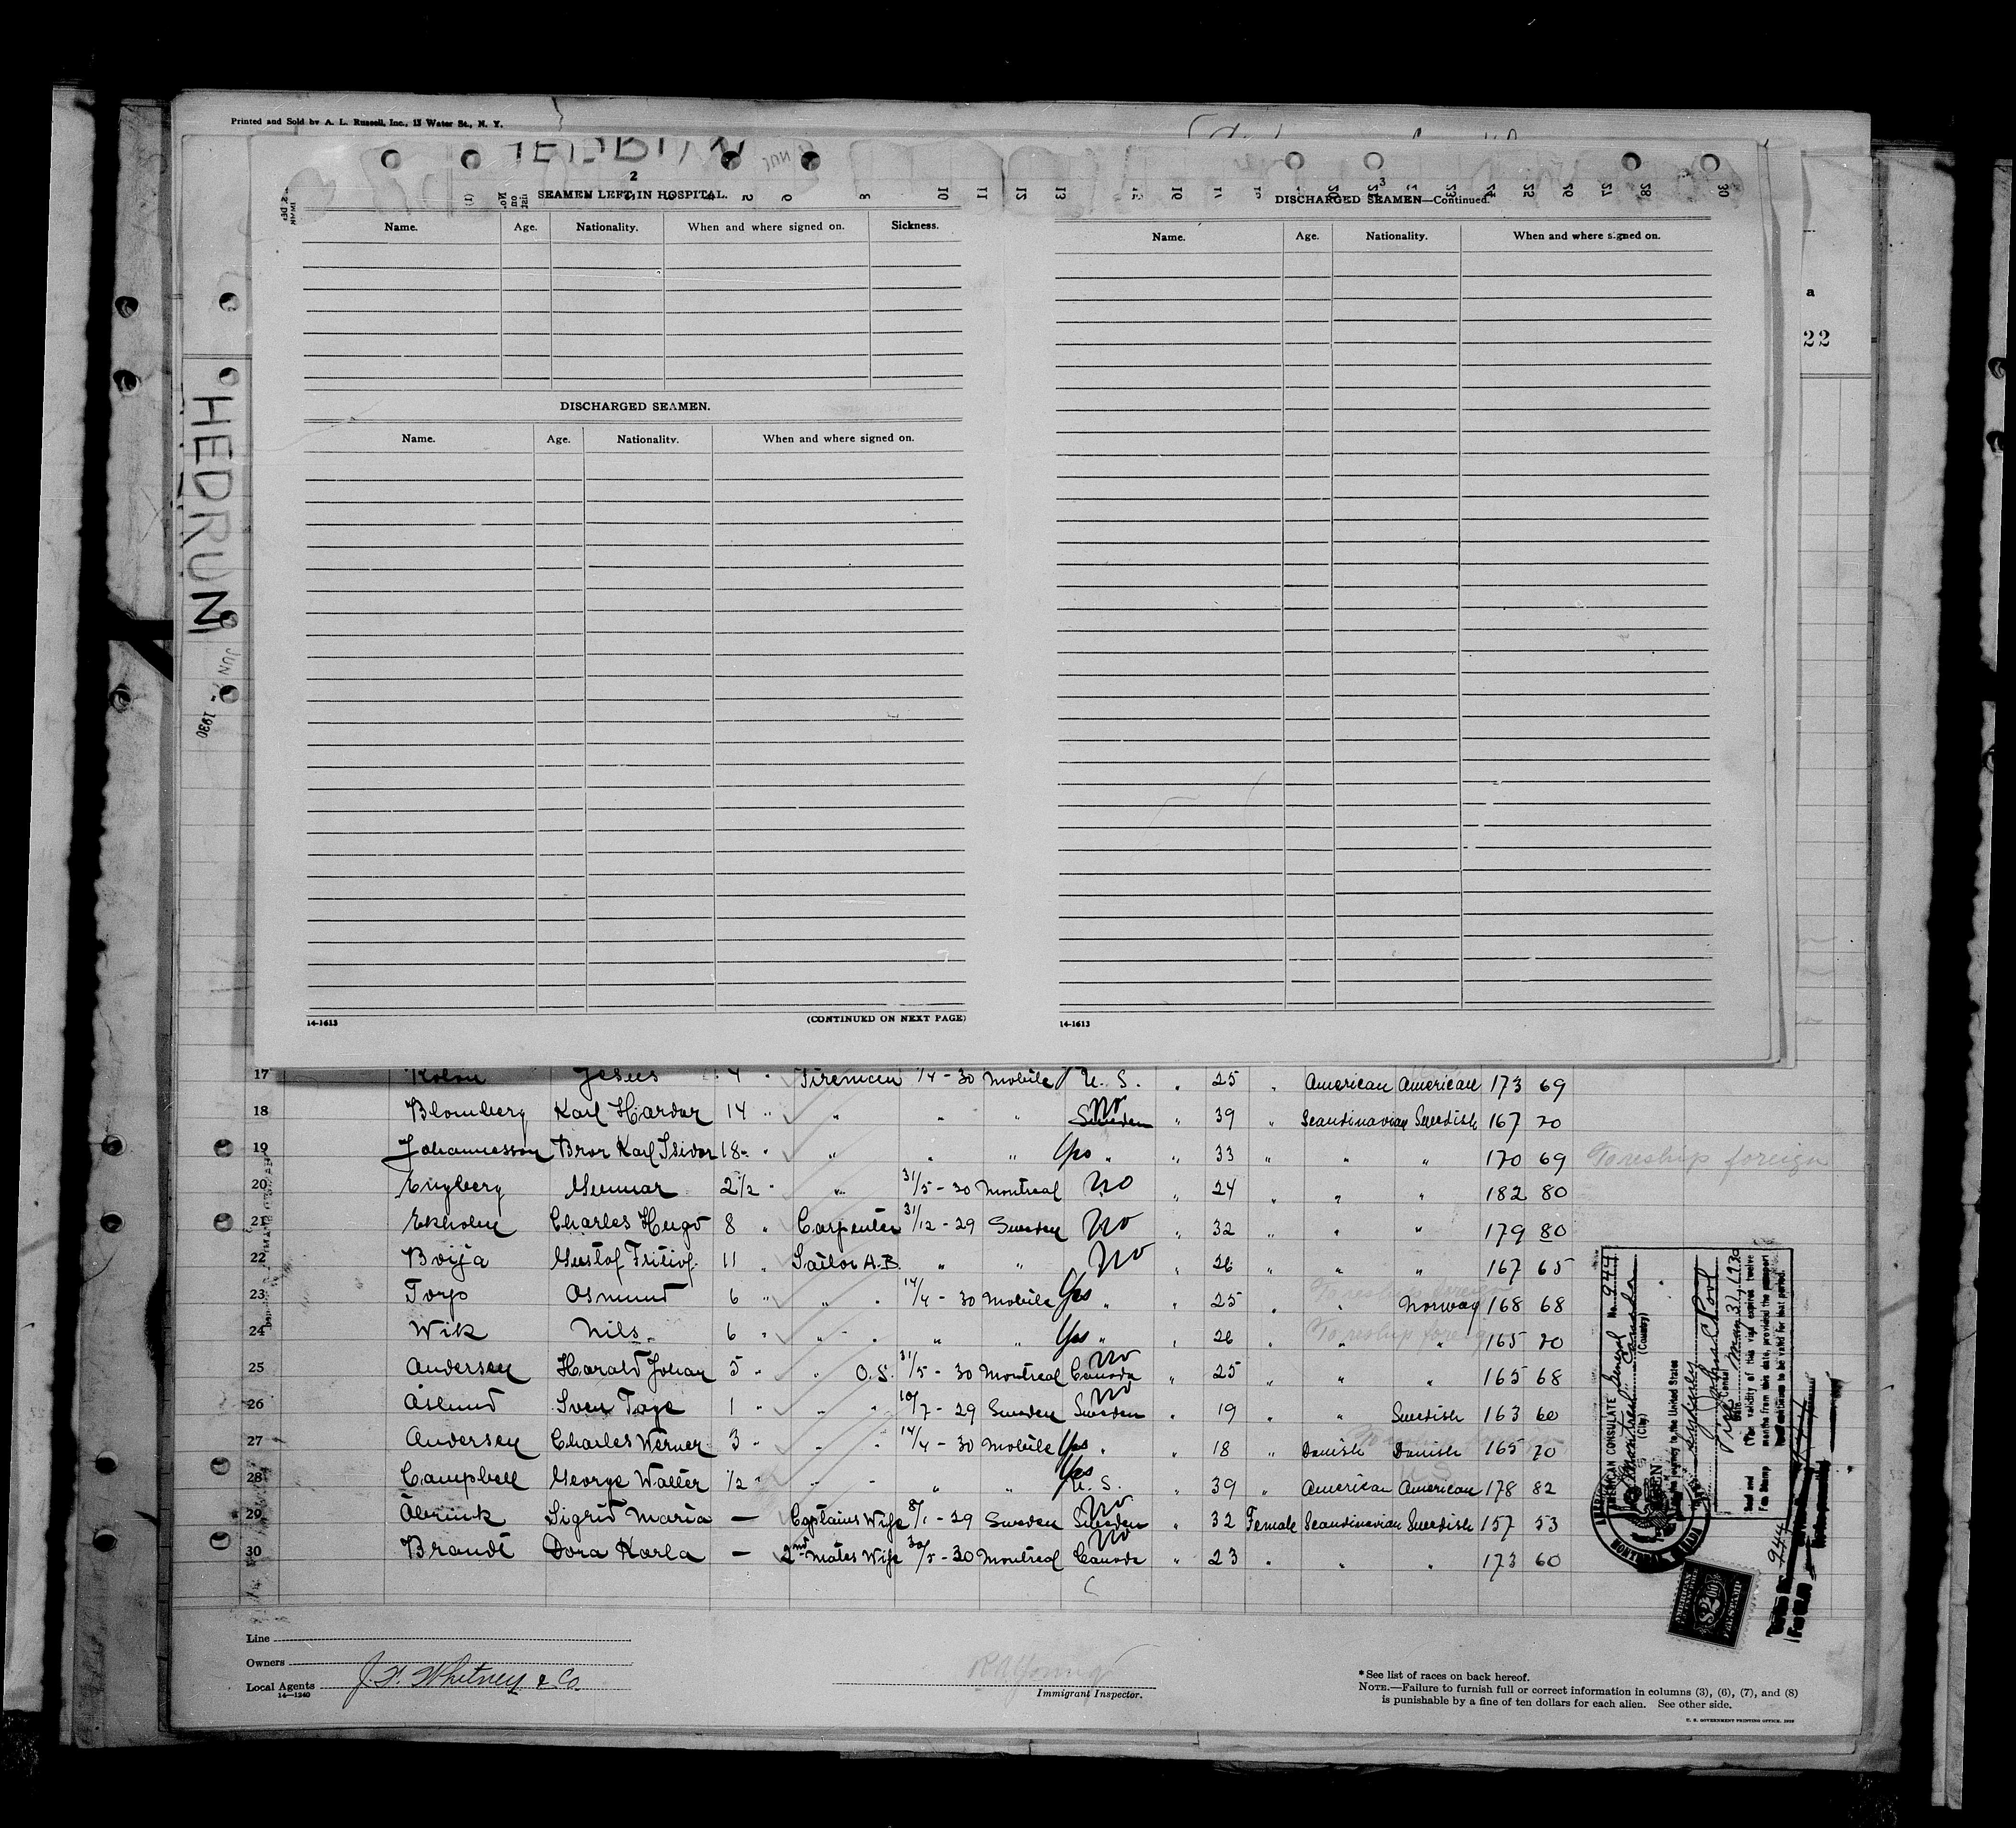 Printed and Sold by A. L. Russell, Inc., 13 Water St., N. Y.
2
SEAMEN LEFT IN HOSPITAL.
Name. Age. Nationality. When and where signed on. Sickness.
DISCHARGED SEAMEN.
Name. Age. Nationality. When and where signed on.
14-1613 (CONTINUED ON NEXT PAGE)
3
DISCHARGED SEAMEN—Continued.
Name. Age. Nationality. When and where signed on.
14-1613
a
22
HEDRUN
JUN - 1930
17 Kolon Jesus 4 " Firemen 1/4 - 30 Mobile U. S. " 25 " American American 173 69
18 Blomberg Karl Hardar 14 " " " " no Sweden " 39 " Scandinavian Swedish 167 70
19 Johannesson Bror Karl Isidor 18 " " " " Yes " " 33 " " " 170 69 To reship foreign
20 Engberg Gunnar 2 1/2 " " 31/5 - 30 Montreal no " 24 " " " 182 80
21 Ekholm Charles Hugo 8 " Carpenter 31/12 - 29 Sweden no " 32 " " " 179 80
22 Boija Gustof Fritiof 11 " Sailor A.B. " " no " 26 " " " 167 65
23 Torp Osmund 6 " " " 14/4 - 30 Mobile Yes " " 25 " " Norway 168 68
24 Wik Nils 6 " " " " " Yes " " 26 " To reship foreign " " 165 70
25 Andersen Harald Johan 5 " " O.S. 31/5 - 30 Montreal no Canada " 25 " " " 165 68
26 Åslund Sven Tage 1 " " " 10/7 - 29 Sweden no Sweden " 19 " " Swedish 163 60
27 Andersen Charles Werner 3 " " " 14/4 - 30 Mobile Yes " " 18 " Danish Danish 165 70
28 Campbell George Walter 1/2 " " " " " Yes U. S. " 39 " American American 178 82
29 Åbrink Sigrid Maria — Captains Wife 8/1 - 29 Sweden no Sweden " 32 Female Scandinavian Swedish 157 53
30 Brandt Dora Karla — 2nd Mates Wife 30/5 - 30 Montreal no Canada " 23 " " " 173 60
AMERICAN CONSULATE General No. 944
Montreal Canada
(City) (Country)
SEEN
journey to the United States
Date May 31 1930
(The validity of this visa expires twelve months from this date, provided the passport continues to be valid for that period.
Seal and Fee Stamp
944
AMERICAN
$2.00
FEE STAMP
Line
Owners
Local Agents J. H. Whitney & Co.
14—1240
R N Young
Immigrant Inspector.
*See list of races on back hereof.
NOTE.—Failure to furnish full or correct information in columns (3), (6), (7), and (8)
is punishable by a fine of ten dollars for each alien. See other side.
U. S. GOVERNMENT PRINTING OFFICE. 1929